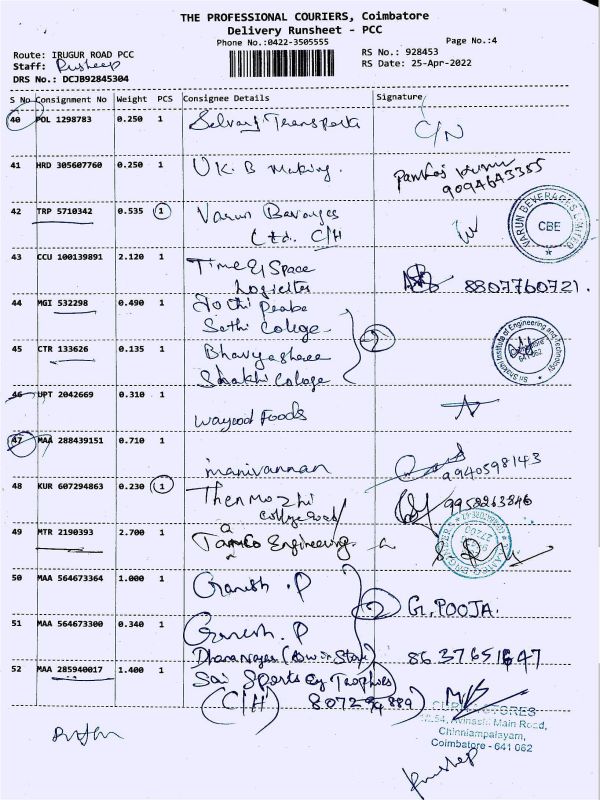 THE PROFESSIONAL COURIERS, Coimbatore
Delivery Runsheet - PCC
Phone No.:0422-3505555
Page No.:4
Route: IRUGUR ROAD PCC
RS No.: 928453
Staff:
RS Date: 25-Apr-2022
DRS No.: DCJB92845304
S No Consignment No Weight PCS Consignee Details Signature
40 POL 1298783 0.250 1 Selvaraj Transports C/N
41 HRD 305607760 0.250 1 U.K.B Making. Pankaj Kumar
9094643355
42 TRP 5710342 0.535 1 Varun Bevarages
Ltd. C/H
VARUN BEVERAGES LIMITED
CBE
43 CCU 100139891 2.120 1 Time & Space
Logistics 8807760721.
44 MGI 532298 0.490 1 Jothi
Sathi College
45 CTR 133626 0.135 1 Bhavyashree
Shakthi College
2
Sri Shakthi Institute of Engineering and Technology
Coimbatore
641 062
46 UPT 2042669 0.310 1 Waycool Foods
47 MAA 288439151 0.710 1 manivannan 9940598143
48 KUR 607294863 0.230 1 Thenmozhi
College Road 9958263846
49 MTR 2190393 2.700 1 Tamco Engineering
50 MAA 564673364 1.000 1 Ganesh .P
2 G. POOJA.
51 MAA 564673300 0.340 1 Ganesh. P
8637651647
52 MAA 285940017 1.400 1 Sai Sports & Trophies
(C/H)
STORES
Avinashi Main Road,
Chinniampalayam,
Coimbatore - 641 062